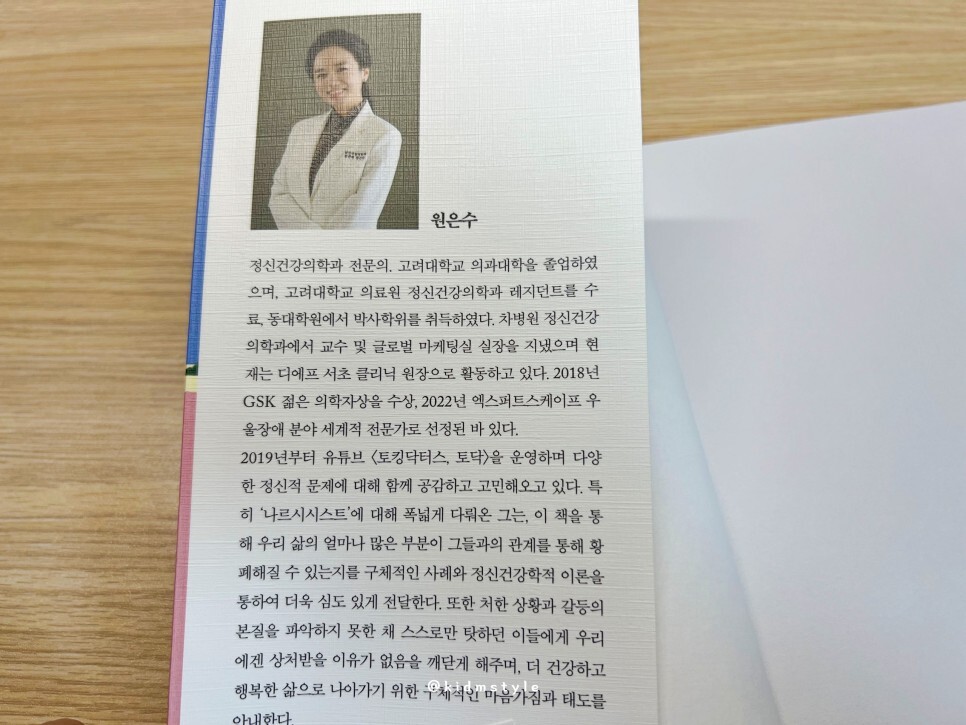 원은수
정신건강의학과 전문의. 고려대학교 의과대학을 졸업하였
으며, 고려대학교 의료원 정신건강의학과 레지던트를 수
료, 동대학원에서 박사학위를 취득하였다. 차병원 정신건강
의학과에서 교수 및 글로벌 마케팅실 실장을 지냈으며 현
재는 디에프 서초 클리닉 원장으로 활동하고 있다. 2018년
GSK 젊은 의학자상을 수상, 2022년 엑스퍼트스케이프 우
울장애 분야 세계적 전문가로 선정된 바 있다.
2019년부터 유튜브 〈토킹닥터스, 토닥〉을 운영하며 다양
한 정신적 문제에 대해 함께 공감하고 고민해오고 있다. 특
히 ‘나르시시스트’에 대해 폭넓게 다뤄온 그는, 이 책을 통
해 우리 삶의 얼마나 많은 부분이 그들과의 관계를 통해 황
폐해질 수 있는지를 구체적인 사례와 정신건강학적 이론을
통하여 더욱 심도 있게 전달한다. 또한 처한 상황과 갈등의
본질을 파악하지 못한 채 스스로만 탓하던 이들에게 우리
에겐 상처받을 이유가 없음을 깨닫게 해주며, 더 건강하고
행복한 삶으로 나아가기 위한 구체적인 마음가짐과 태도를
@kidmstyle
안내한다.